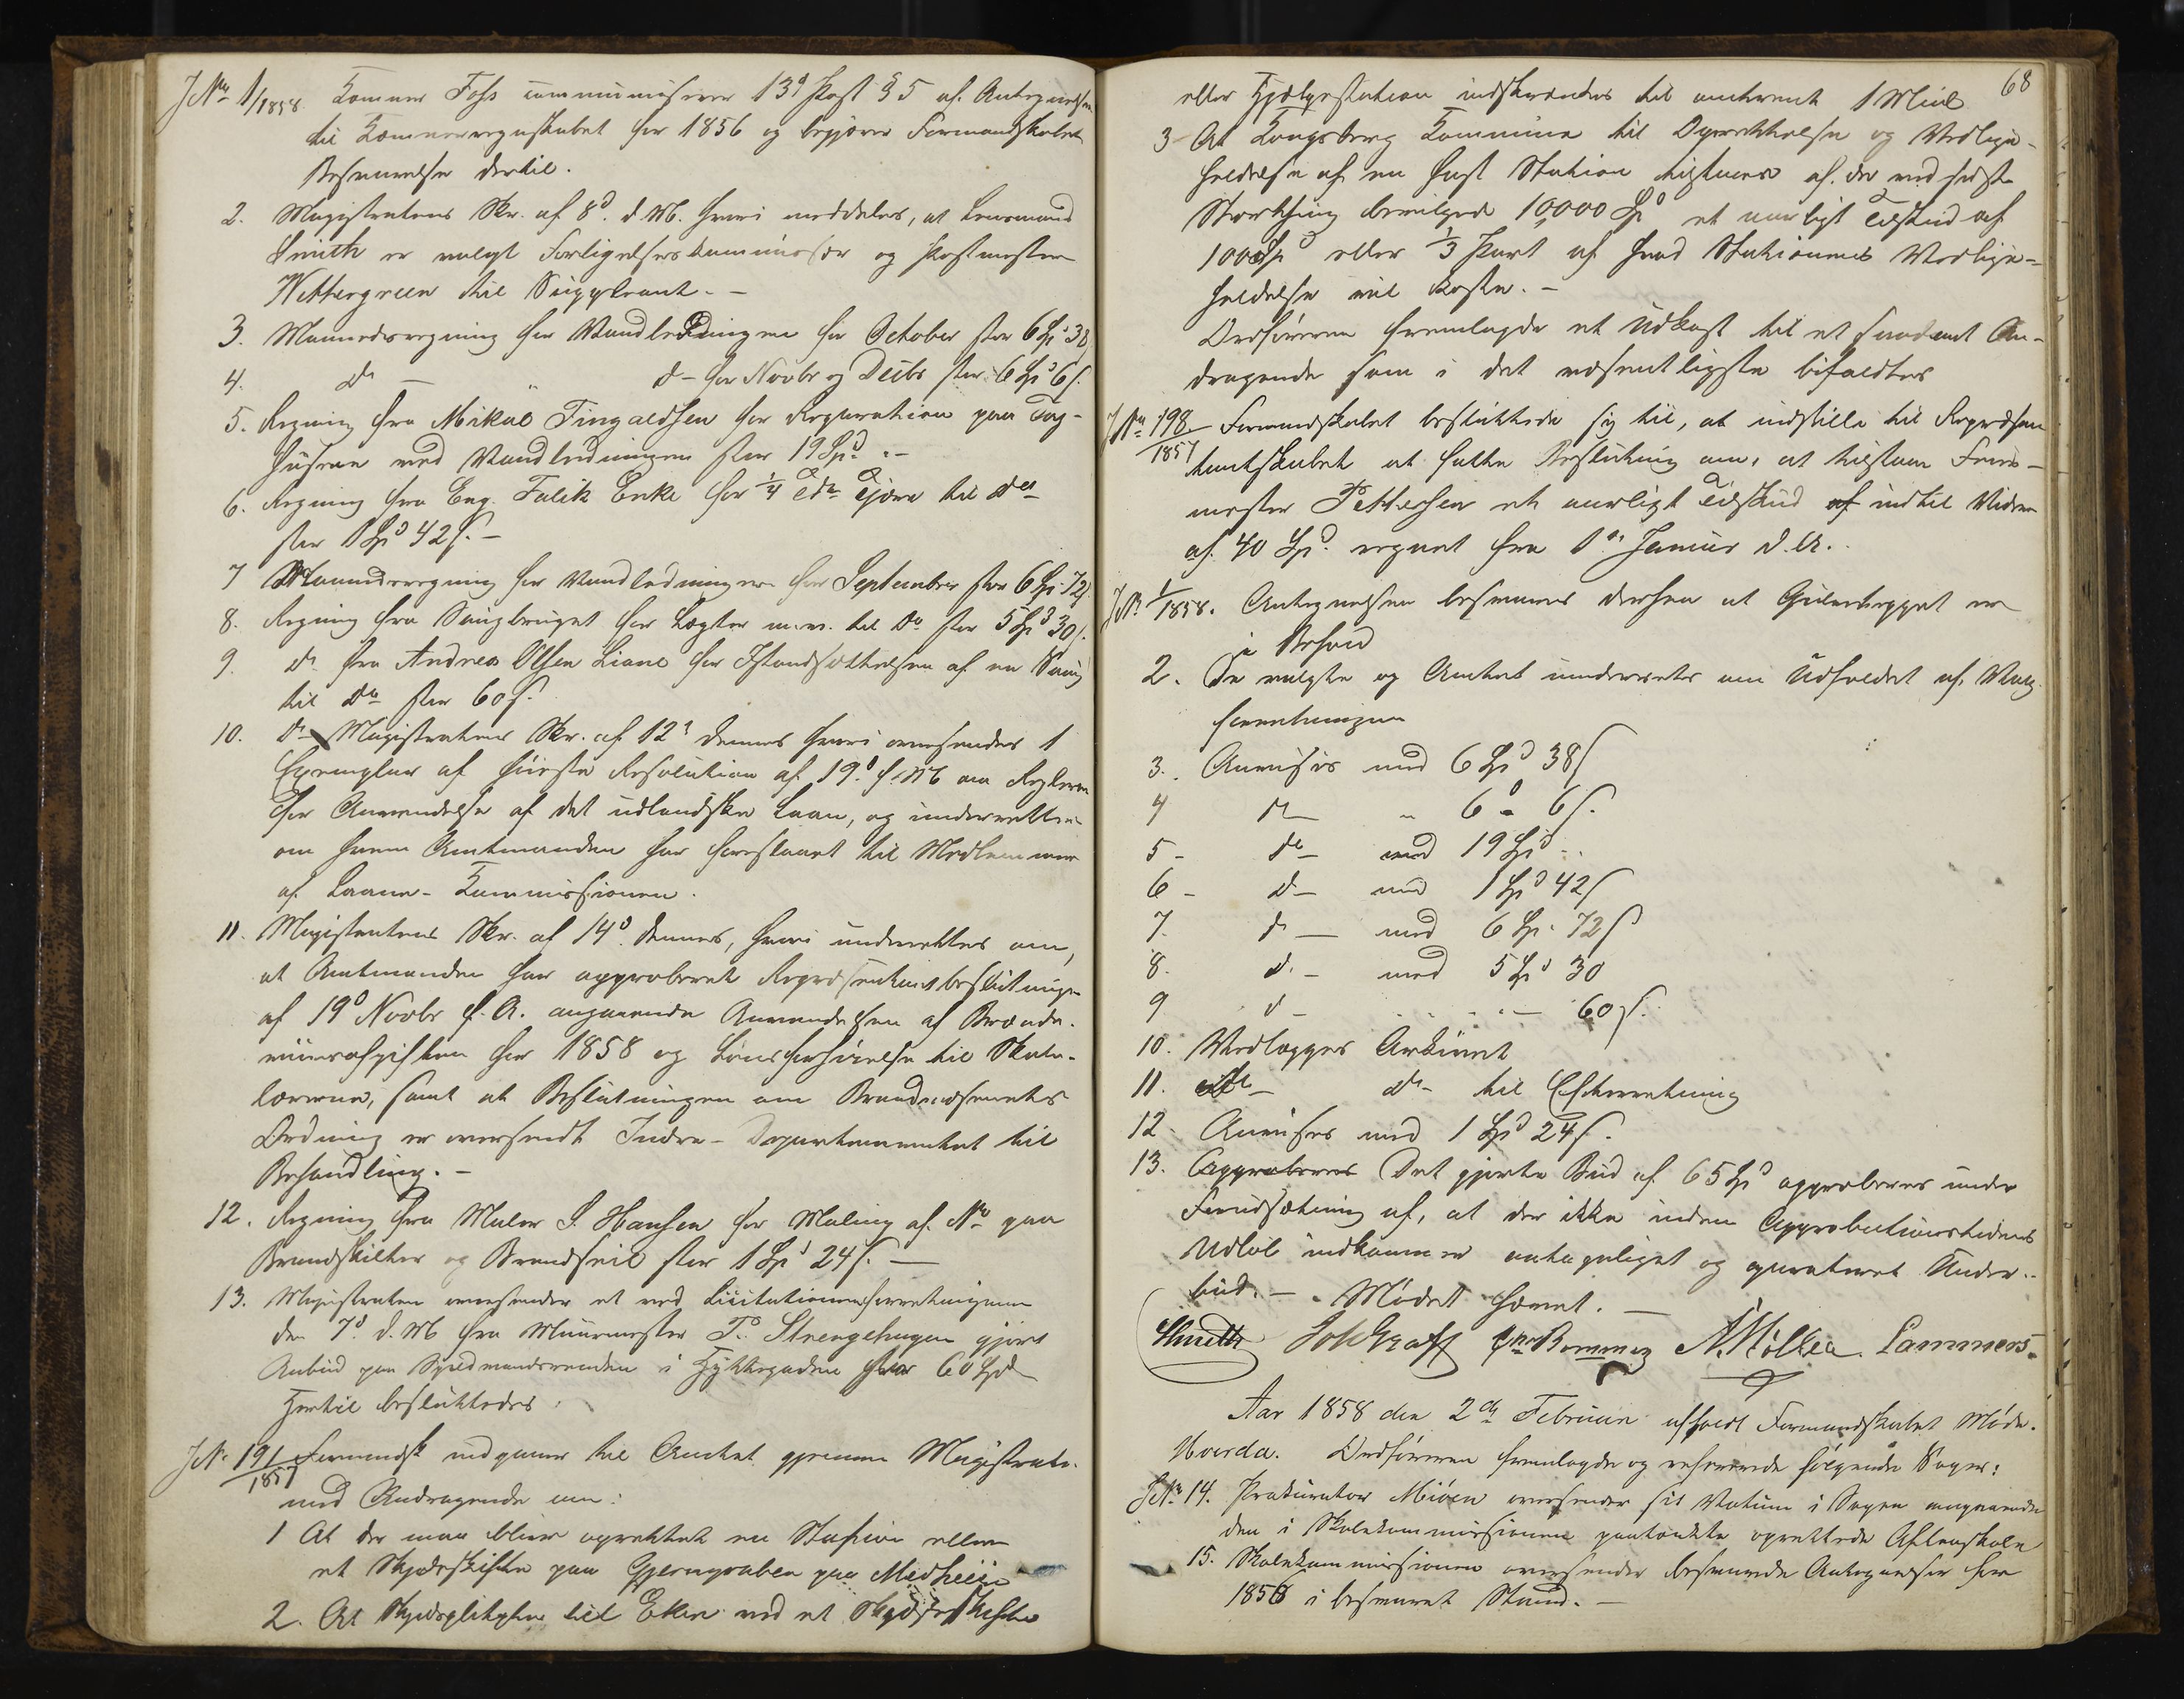 JNo 1/1858. Kæmner Foss communiserer 13d Post § 5 af Antegnelsen
til Kæmnerregnskabet for 1856 og begjærer Formandskabets
Besvarelse dertil.
2. Magistratens Skr. af 8d. d. M. hvori meddeles, at Lensmand
Smith er valgt Forligelseskommissær og Postmester
Wettergreen til Suppleant. -
3. Maanedsregning for Vandledningen for October stor 6 Spd 38
4. do - " d - for Novbr og Decbr stor 6 Spd 6 s.
5. Regning fra Mikal Tingaldsen for Reparation paa Tag-
husene ved Vandledningen stor 19 Spd. -
6. Regning fra Eng. Falik Enke for 1/4 Tde Tjære til do
stor 1 Spd 42 s. -
7 Maanedsregning for Vandledningen for September stor 6 Sp. 72
8. Regning fra Saugbruget for Lægter m.v. til do stor 5 Spd 30 s.
9. do fra Andreas Olsen Liane for Istandsættelsen af en Saug
til do stor 60 s.
10. Magistratens Skr. af 12d dennes hvori oversendes 1
Exemplar af høieste Resolution af 19d f. M. om Reglerne
for Anvendelse af det udlandske Laan, og underrettes
om hvem Amtmanden har foreslaaet til Medlemmer
af Laane-Kommissionen.
11. Magistratens Skr. af 14d. dennes, hvori underrettes om,
at Amtmanden har approberet Repræsentantbeslutningen
af 19d Novbr f. A. angaaende Anvendelsen af Brænde-
viinsafgiften for 1858 og Lønsforhøielse til Skole-
lærerne, samt at Beslutningen om Brandvæsenets
Ordning er oversendt Indre-Departementet til
Behandling. -
12. Regning fra Maler S. Hansen for Maling af No paa
Brandskilter og Brandseil stor 1 Spd 24 s. -
13. Magistraten oversender et ved Licitationsforretningen
den 7d d. M. fra Muurmester P. Strengehagen gjort
Anbud paa Spildevandsrenden i Hyttegaden stor 60 Spd
Hertil besluttedes:
JNo 191/1857 Formandsk. indgaaer til Amtet gjennem Magistraten
med Andragende om:
1 At der maa blive oprettet en Station eller
et Skydsskifte paa Gjerngraben paa Medheien
2. At Skydspligten til Eker ved et Skydsskifte
68
eller Hjælpestation indskrænkes til omtrent 1 Miil
3 - At Kongsberg Kommune til Oprettelse og Vedlige-
holdelse af en fast Station tilstaaes af de ved sidste
Storthing bevilgede 10,000 Spd et aarligt Tilskud af
100 Spd eller 1/3 Part af hvad Stationens Vedlige-
holdelse vil koste. -
Ordføreren fremlagde et Udkast til et saadant An-
dragende som i det væsentligste bifaldtes
JNo 198/1857 Formandskabet besluttede sig til, at indstille til Repræsen
tantskabet at fatte Beslutning om, at tilstaae Feier-
mester Pettersen et aarligt Tilskud af indtil Videre
af 40 Spd. regnet fra 1st Januar d. A.
JNo 1/1858. Antegnelsen besvares derhen at Gulvteppet er
i Behold
2. De valgte og Amtet underrettes om Udfaldet af Valg-
forretningen
3. Anvises med 6 Spd 38 s
4 do " 6 - 6 s.
5 - do - med 19 Spd -
6 - d - med 1 Spd 42 s
7. d - med 6 Sp. 72 s
8. d. - med 5 Spd 30
9 d - - - - 60 s.
10. Vedlægges Arkivet
11. do - do - til Efterretning
12. Anvises med 1 Spd 24 s.
13. Approberes Det gjorte Bud af 65 Spd approberes under
Forudsætning af, at der ikke inden Approbationstidens
Udløb indkommer antageligt og garanteret Under-
bud. - Mødet hævet. -
Smith Joh Graff Bommen N. Møller Lammers.
Aar 1858 den 2den Februar afholdt Formandskabet Møde.
Hvorda. Ordføreren fremlagde og refererede følgende Sager:
JNo 14. Prokurator Miøen oversender sit Votum i Sagen angaaende
den i Skolekommissionen paatænkte oprettede Aftenskole
15. Skolekommissionen oversender besvarede Antegnelser for
1856 i besvaret Stand. -